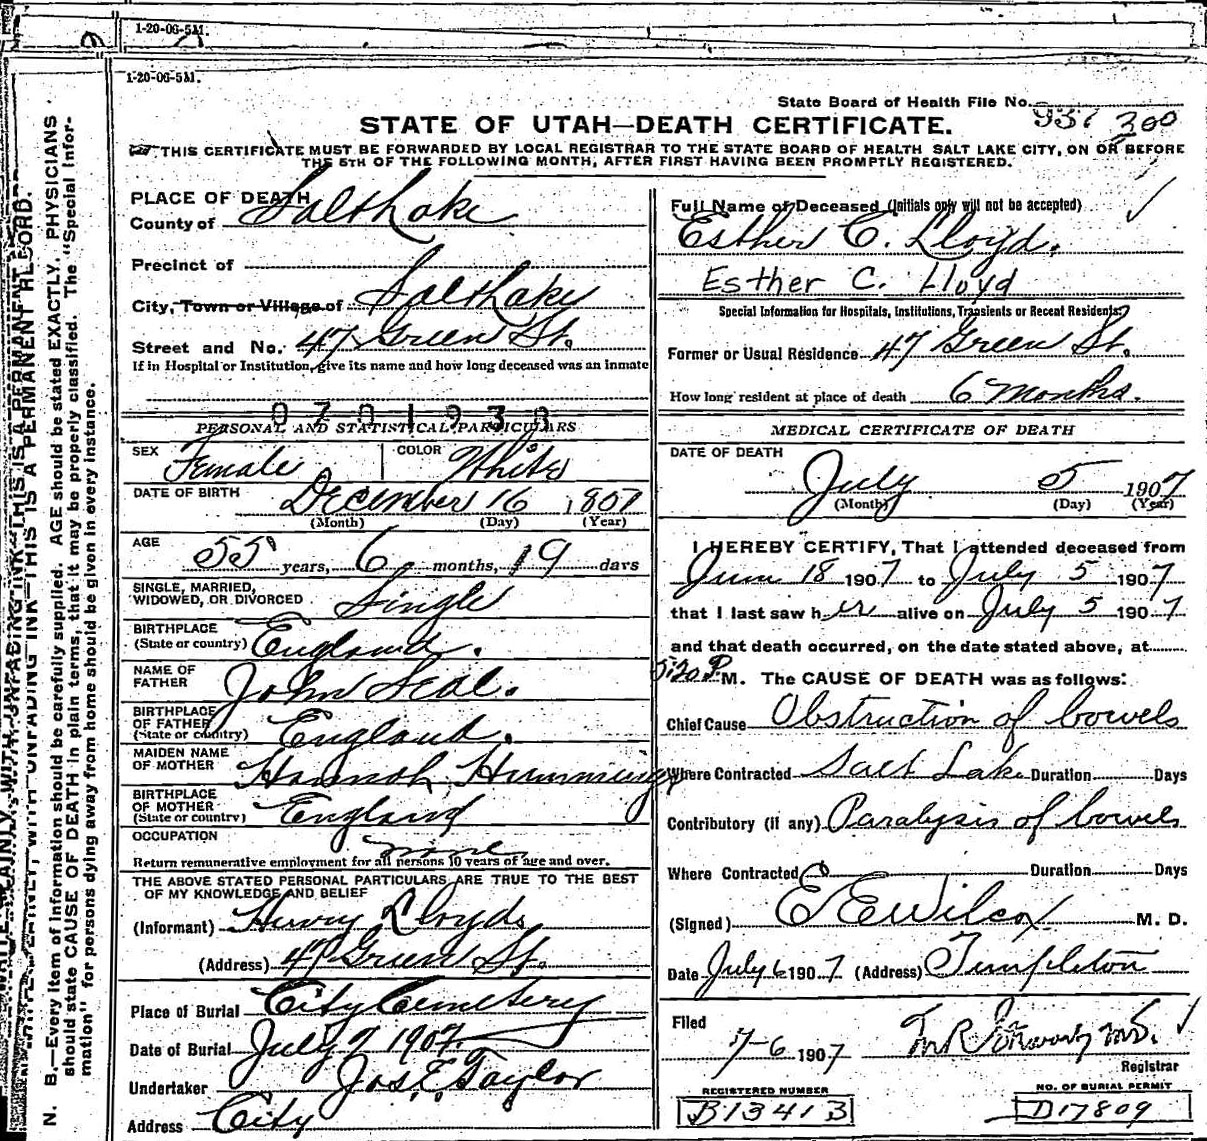 1-20-06-5M.
1-20-06-5M.
State Board of Health File No. 937 300
STATE OF UTAH—DEATH CERTIFICATE.
THIS CERTIFICATE MUST BE FORWARDED BY LOCAL REGISTRAR TO THE STATE BOARD OF HEALTH SALT LAKE CITY, ON OR BEFORE
THE 5TH OF THE FOLLOWING MONTH, AFTER FIRST HAVING BEEN PROMPTLY REGISTERED.
PLACE OF DEATH
County of Salt Lake
Precinct of
City, Town or Village of Salt Lake
Street and No. 47 Green St.
If in Hospital or Institution, give its name and how long deceased was an inmate
0701938
PERSONAL AND STATISTICAL PARTICULARS
SEX Female COLOR White
DATE OF BIRTH December 16 1851
(Month) (Day) (Year)
AGE 55 years, 6 months, 19 days
SINGLE, MARRIED,
WIDOWED, OR DIVORCED Single
BIRTHPLACE
(State or country) England.
NAME OF
FATHER John Seal.
BIRTHPLACE
OF FATHER
(State or country) England.
MAIDEN NAME
OF MOTHER Hannah Hummings
BIRTHPLACE
OF MOTHER
(State or country) England
OCCUPATION none
Return remunerative employment for all persons 10 years of age and over.
THE ABOVE STATED PERSONAL PARTICULARS ARE TRUE TO THE BEST
OF MY KNOWLEDGE AND BELIEF
(Informant) Henry Lloyds
(Address) 47 Green St.
Place of Burial City Cemetery
Date of Burial July 9 1907
Undertaker Jos. E. Taylor
Address City
Full Name of Deceased (Initials only will not be accepted)
Esther C. Lloyd.
Esther C. Lloyd
Special Information for Hospitals, Institutions, Transients or Recent Residents.
Former or Usual Residence 47 Green St.
How long resident at place of death 6 Months.
MEDICAL CERTIFICATE OF DEATH
DATE OF DEATH
July 5 1907
(Month) (Day) (Year)
I HEREBY CERTIFY, That I attended deceased from
June 18 1907 to July 5 1907
that I last saw her alive on July 5 1907
and that death occurred, on the date stated above, at
5:20 P. M. The CAUSE OF DEATH was as follows:
Chief Cause Obstruction of bowels
Where Contracted Salt Lake Duration Days
Contributory (if any) Paralysis of bowels
Where Contracted Duration Days
(Signed) E E Wilcox M. D.
Date July 6 1907 (Address) Templeton
Filed
7-6 1907
Registrar
REGISTERED NUMBER
B13413
NO. OF BURIAL PERMIT
D17809
N. B.—Every item of information should be carefully supplied. AGE should be stated EXACTLY. PHYSICIANS
should state CAUSE OF DEATH in plain terms, that it may be properly classified. The "Special Infor-
mation" for persons dying away from home should be given in every instance.
WRITE PLAINLY, WITH UNFADING INK—THIS IS A PERMANENT RECORD.